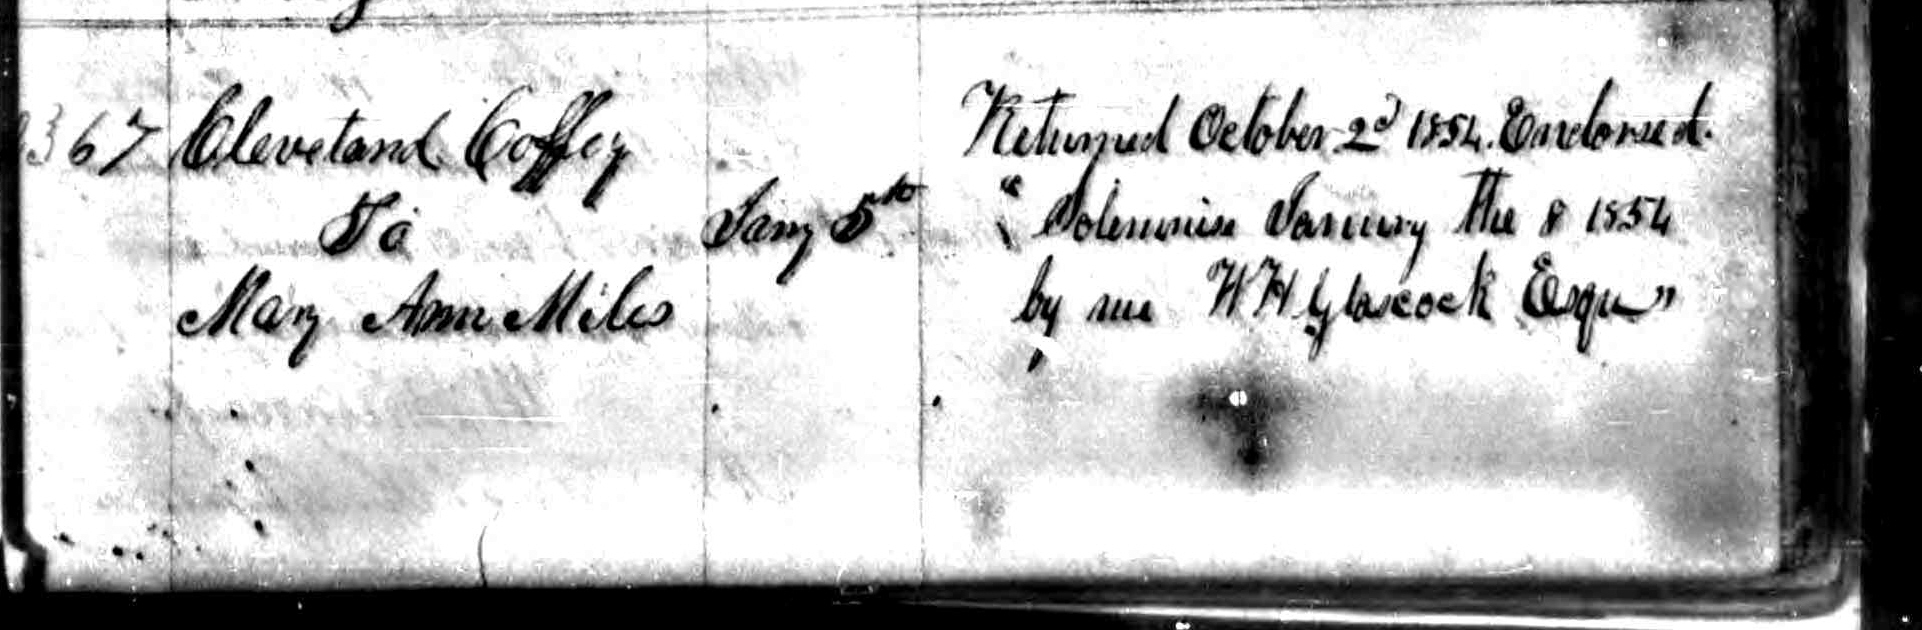 367 Cleveland Coffey
To
Mary Ann Miles
Jany 5th
Returned October 2d 1854. Endorsed.
"Solemnise January the 8 1854
by me W H Glascock Esqu"